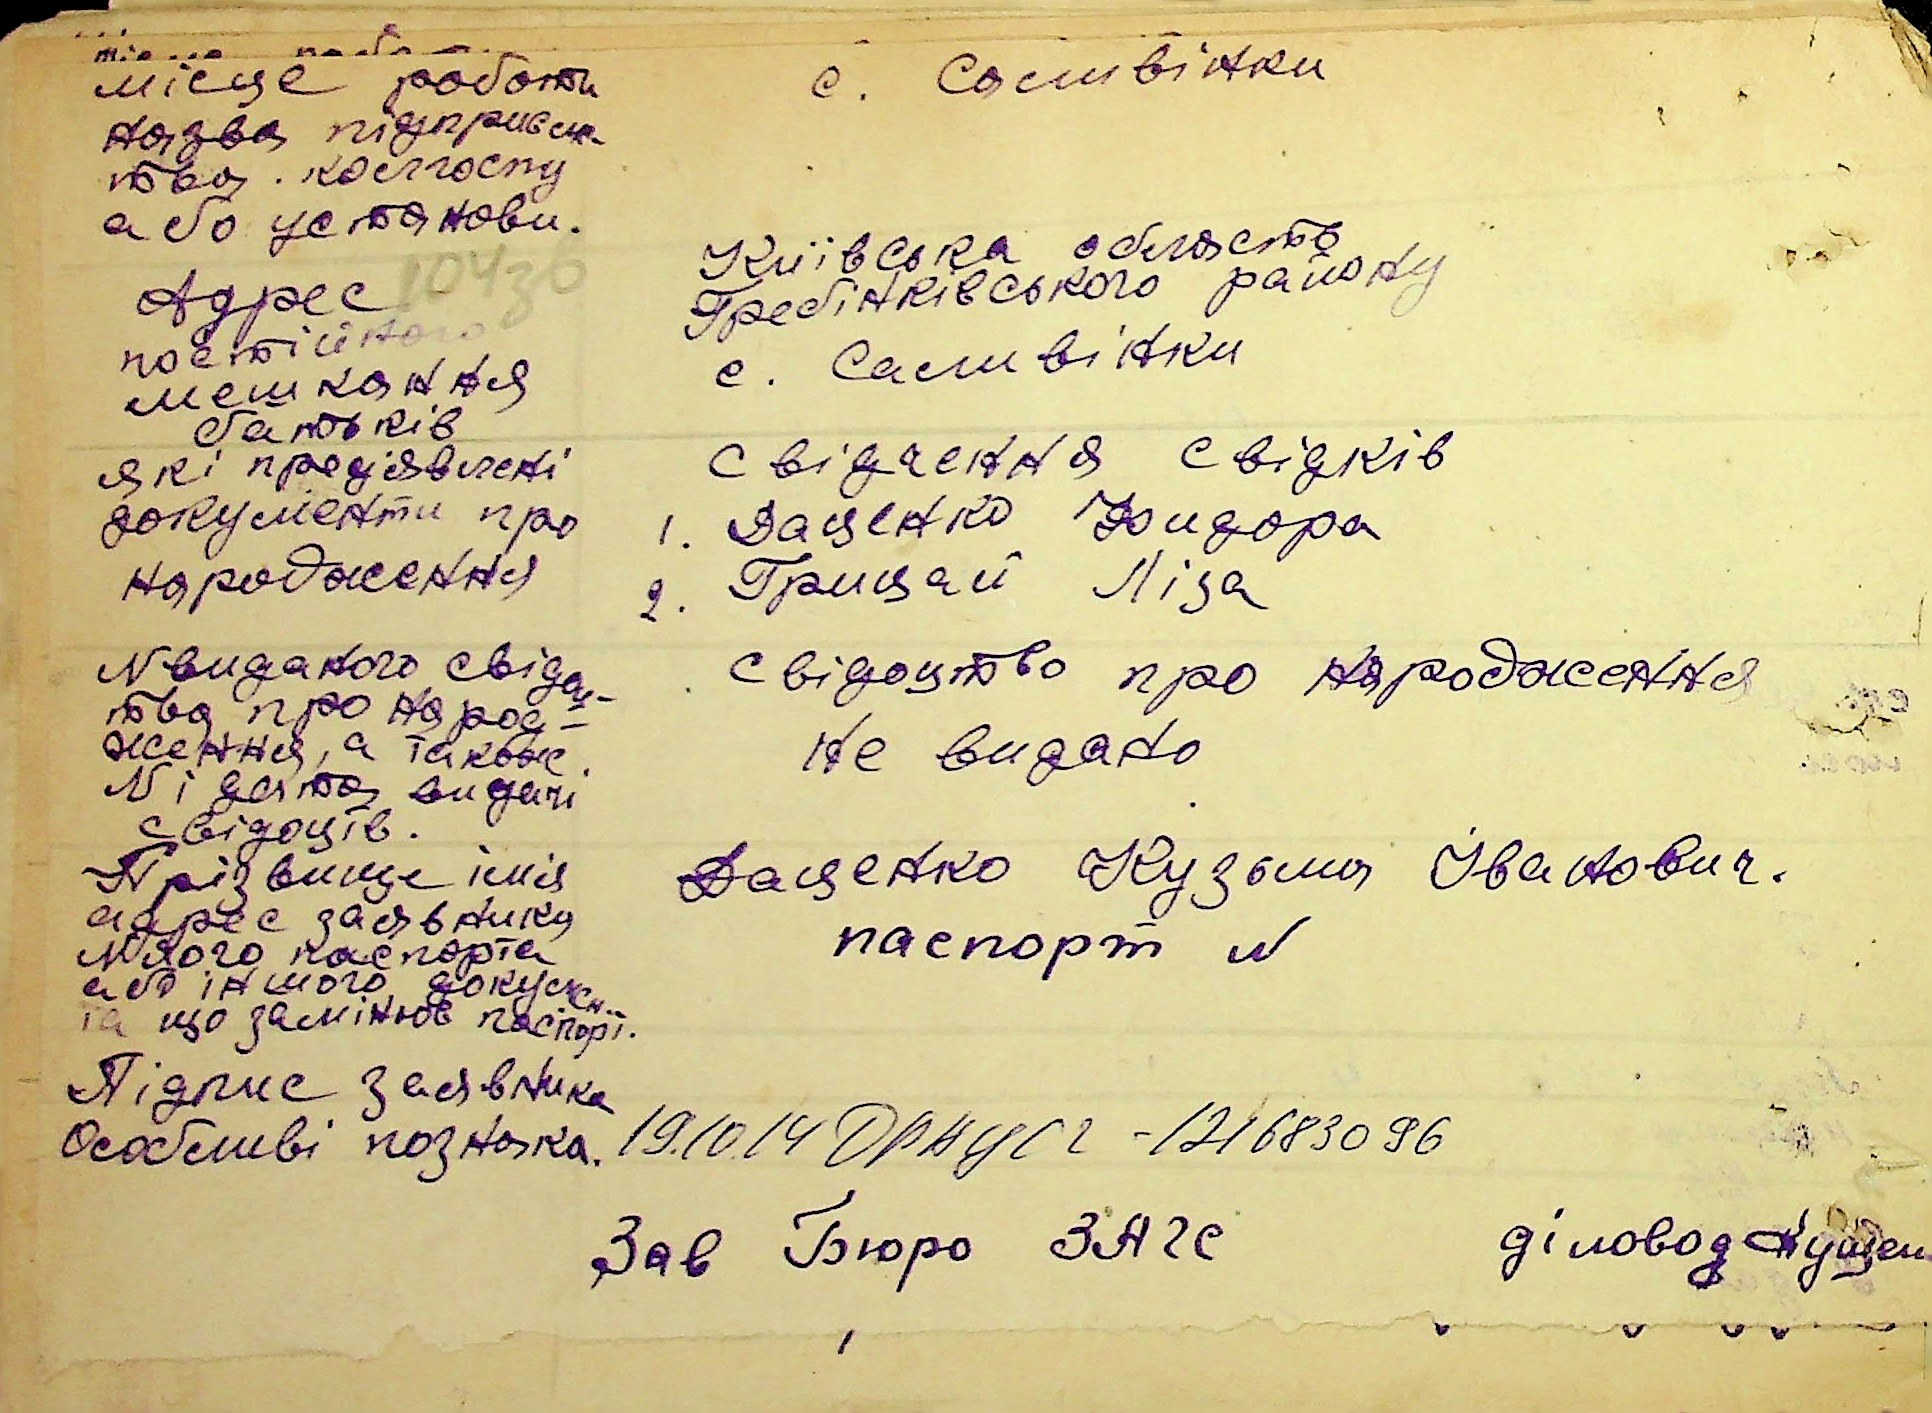 місце роботи
с. Саливінки
назва підприєм-
тва. колгоспу
або установи.
Адрес
постійного
мешкання
батьків
Київська область
Гребінківського району
с. Саливінки
які предявлені
документи про
народження
Свідчення свідків
1. Даценко Тодора
2. Грицай Ліза
N виданого свідоц-
тва про народ-
ження, а також
N і дата видачі
свідоцтв.
свідоцтво про народження
не видано
Прізвище імія
адрес заявника
N його паспорта
або іншого докумен-
та що замінює паспорт.
Даценко Кузьма Іванович.
паспорт N
Підпис заявника
Особливі позначка.
19.10.14 ДРАЦСГ - 121683096
Зав Бюро ЗАГС
діловод